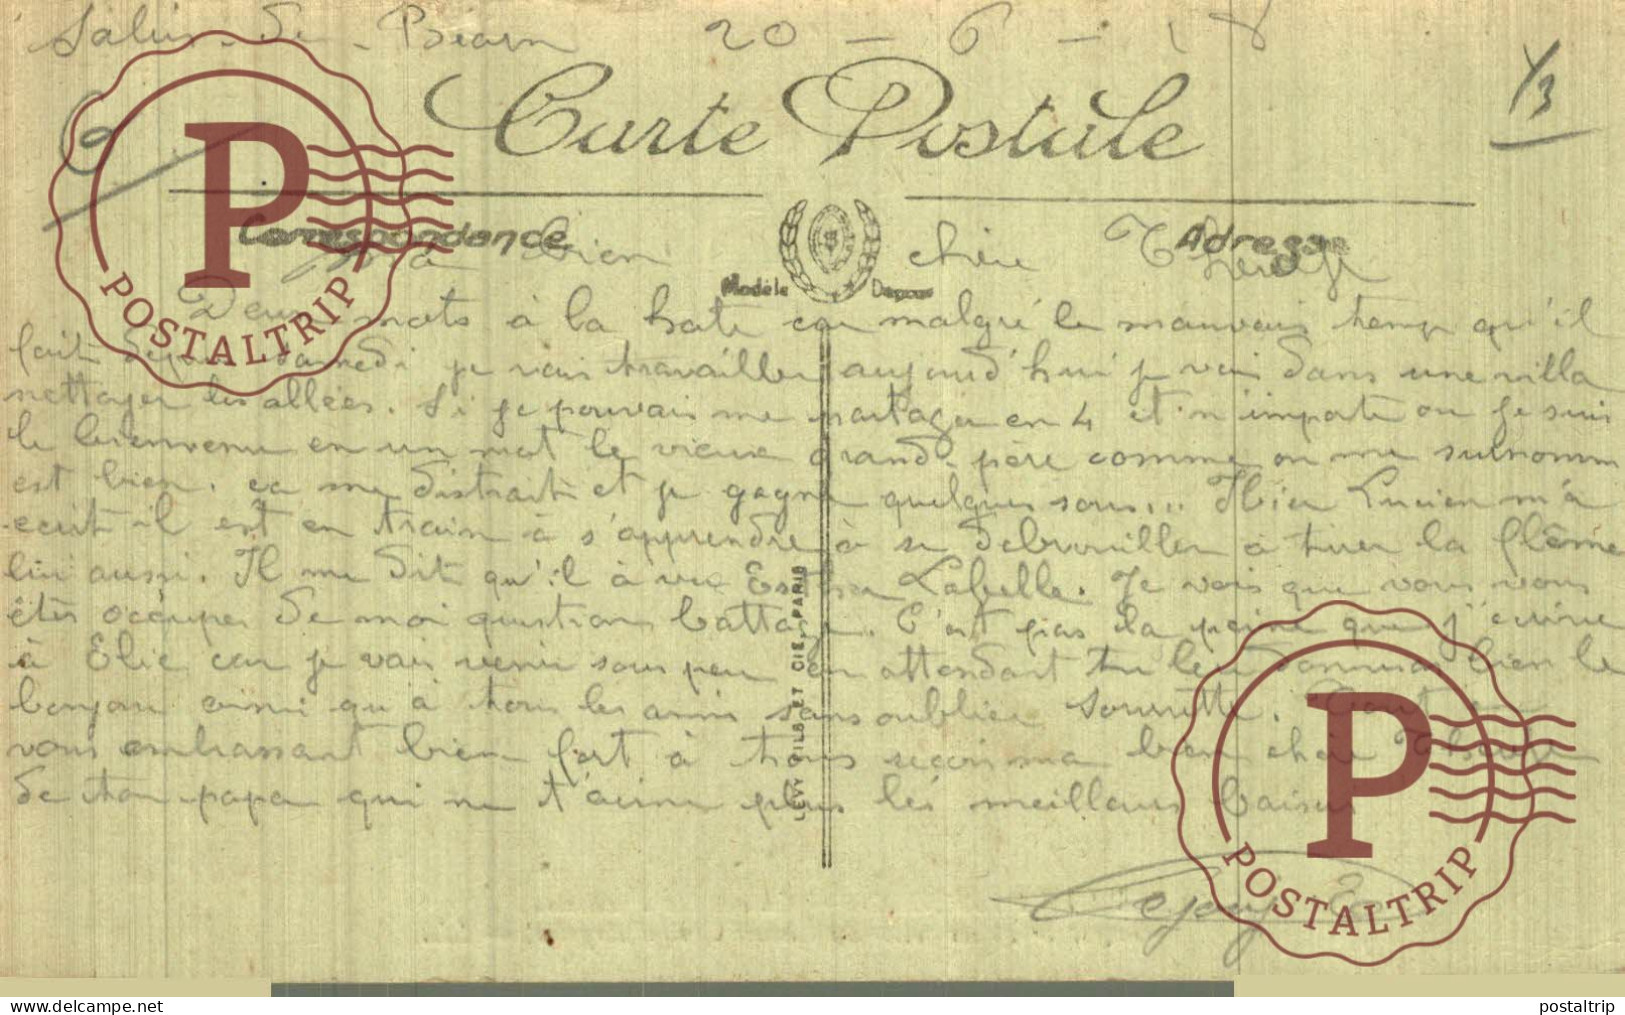 Salies-de-Béarn 20-6-18
1/3
Carte Postale
Correspondance
Adresse
Modèle Déposé
Ma bien chère Thérèse
Deux mots à la hate car malgré le mauvais temps qu'il
fait depuis samedi je vais travailler aujourd'hui je vais dans une villa
nettoyer les allées. Si je pouvais me partager en 4 et n'importe ou je suis
le bienvenu en un mot le vieux grand-père comme on me surnomm
est bien. ca me distrait et je gagne quelques sous... Hier Lucien m'a
ecrit il est en train à s'apprendre à se debrouiller à tirer la flème
lui aussi. Il me dit qu'il à vu Labelle. Je vois que vous vous
êtes occupe de moi question battage. C'est pas la peine que j'écrive
à Elie car je vais venir sous peu en attendant tu leur donneras bien le
bonjour ainsi qu'à tous les amis sans oublier
vous embrassant bien fort à tous reçois ma bien chère Thérèse
de ton papa qui ne t'aime plus les meilleurs baisers
LEVY FILS ET CIE, PARIS
P
POSTALTRIP
P
POSTALTRIP
www.delcampe.net
postaltrip